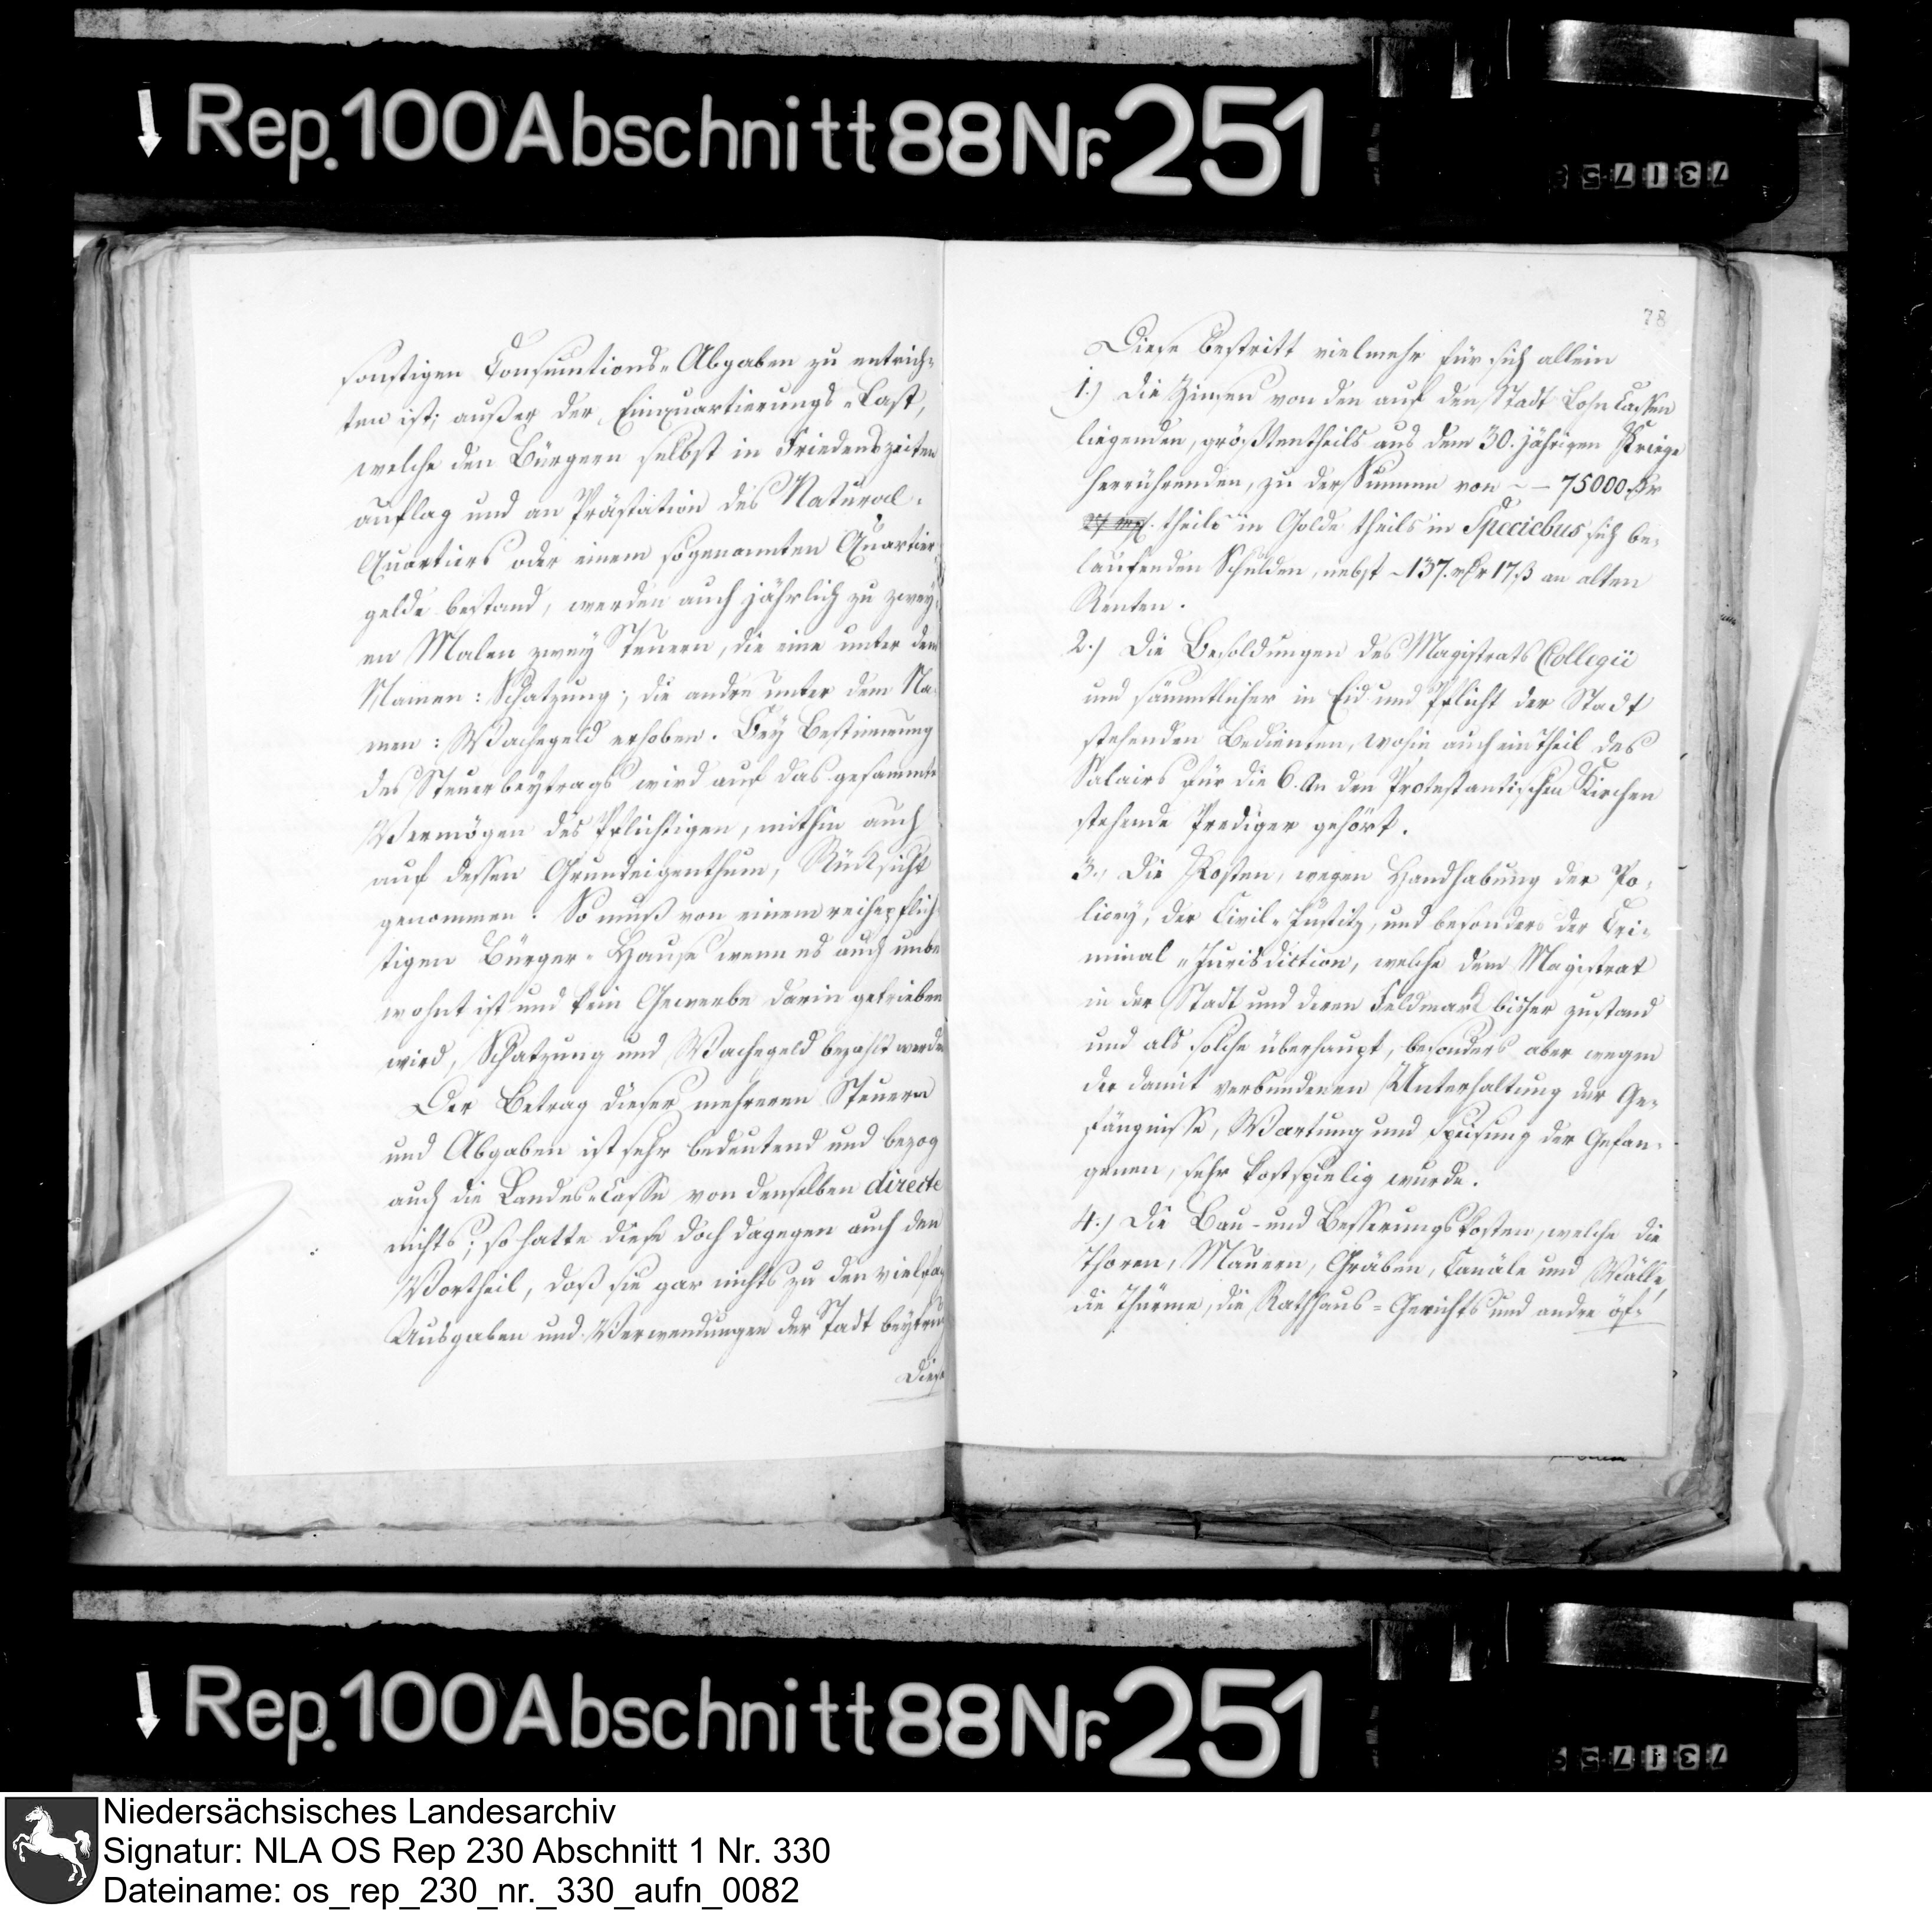 Rep. 100 Abschnitt 88 Nr. 251
73175
sonstigen Consumtions-Abgaben zu entrich-
ten ist; außer der Einquartierungs-Last,
welche den Bürgern selbst in Friedenszeiten
auflag und an Prästation des Natural-
Quartiers oder einem sogenannten Quartier-
gelde bestand, werden auch jährlich zu zwey-
en Malen zwey Steuern, die eine unter dem
Namen: Schatzung; die andre unter dem Na-
men: Wachegeld erhoben. Bey Bestimmung
des Steuerbeytrags wird auf das gesammte
Vermögen des Pflichtigen, mithin auch
auf dessen Grundeigenthum, Rücksicht
genommen. So muß von einem reihepflich-
tigen Bürger-Hause wenn es auch unbe
wohnt ist und kein Gewerbe darin getrieben
wird, Schatzung und Wachegeld bezahlt werden
Der Betrag dieser mehreren Steuern
und Abgaben ist sehr bedeutend und bezog
auch die Landes-Casse von denselben directe
nichts; so hatte diese doch dagegen auch den
Vortheil, daß sie gar nichts zu den vielfa
Ausgaben und Verwendungen der Stadt beytrug
Diese
78
Diese bestritt vielmehr für sich allein
1.) die Zinsen von den auf den Stadt Lohn Cassen
liegenden, größtentheils aus dem 30. jährigen Kriege
herrührenden, zu der Summe von - - 75000 rthlr
theils in Golde theils in Speciebus sich be-
laufenden Schulden, nebst - 137. rthlr 17 ß an alten
Renten.
2.) die Besoldungen des Magistrats Collegii
und sämmtlicher in Eid und Pflicht der Stadt
stehenden Bedienten, wohin auch ein Theil des
Salairs für die 6. an den Protestantischen Kirchen
stehende Prediger gehört.
3.) die Kosten, wegen Handhabung der Po-
licey, der Civil-Justitz, und besonders der Cri-
minal-Jurisdiction, welche dem Magistrat
in der Stadt und deren Feldmark bisher zustand
und als solche überhaupt, besonders aber wegen
der damit verbundenen Unterhaltung der Ge-
fängnisse, Wartung und Speisung der Gefan-
genen, sehr kostspielig wurde.
4.) die Bau- und Besserungskosten, welche die
Thoren, Mauern, Gräben, Canäle und Wälle,
die Thürme, die Rathhaus- Gerichts und andre öf-
Rep. 100 Abschnitt 88 Nr. 251
73175
Niedersächsisches Landesarchiv
Signatur: NLA OS Rep 230 Abschnitt 1 Nr. 330
Dateiname: os_rep_230_nr._330_aufn_0082